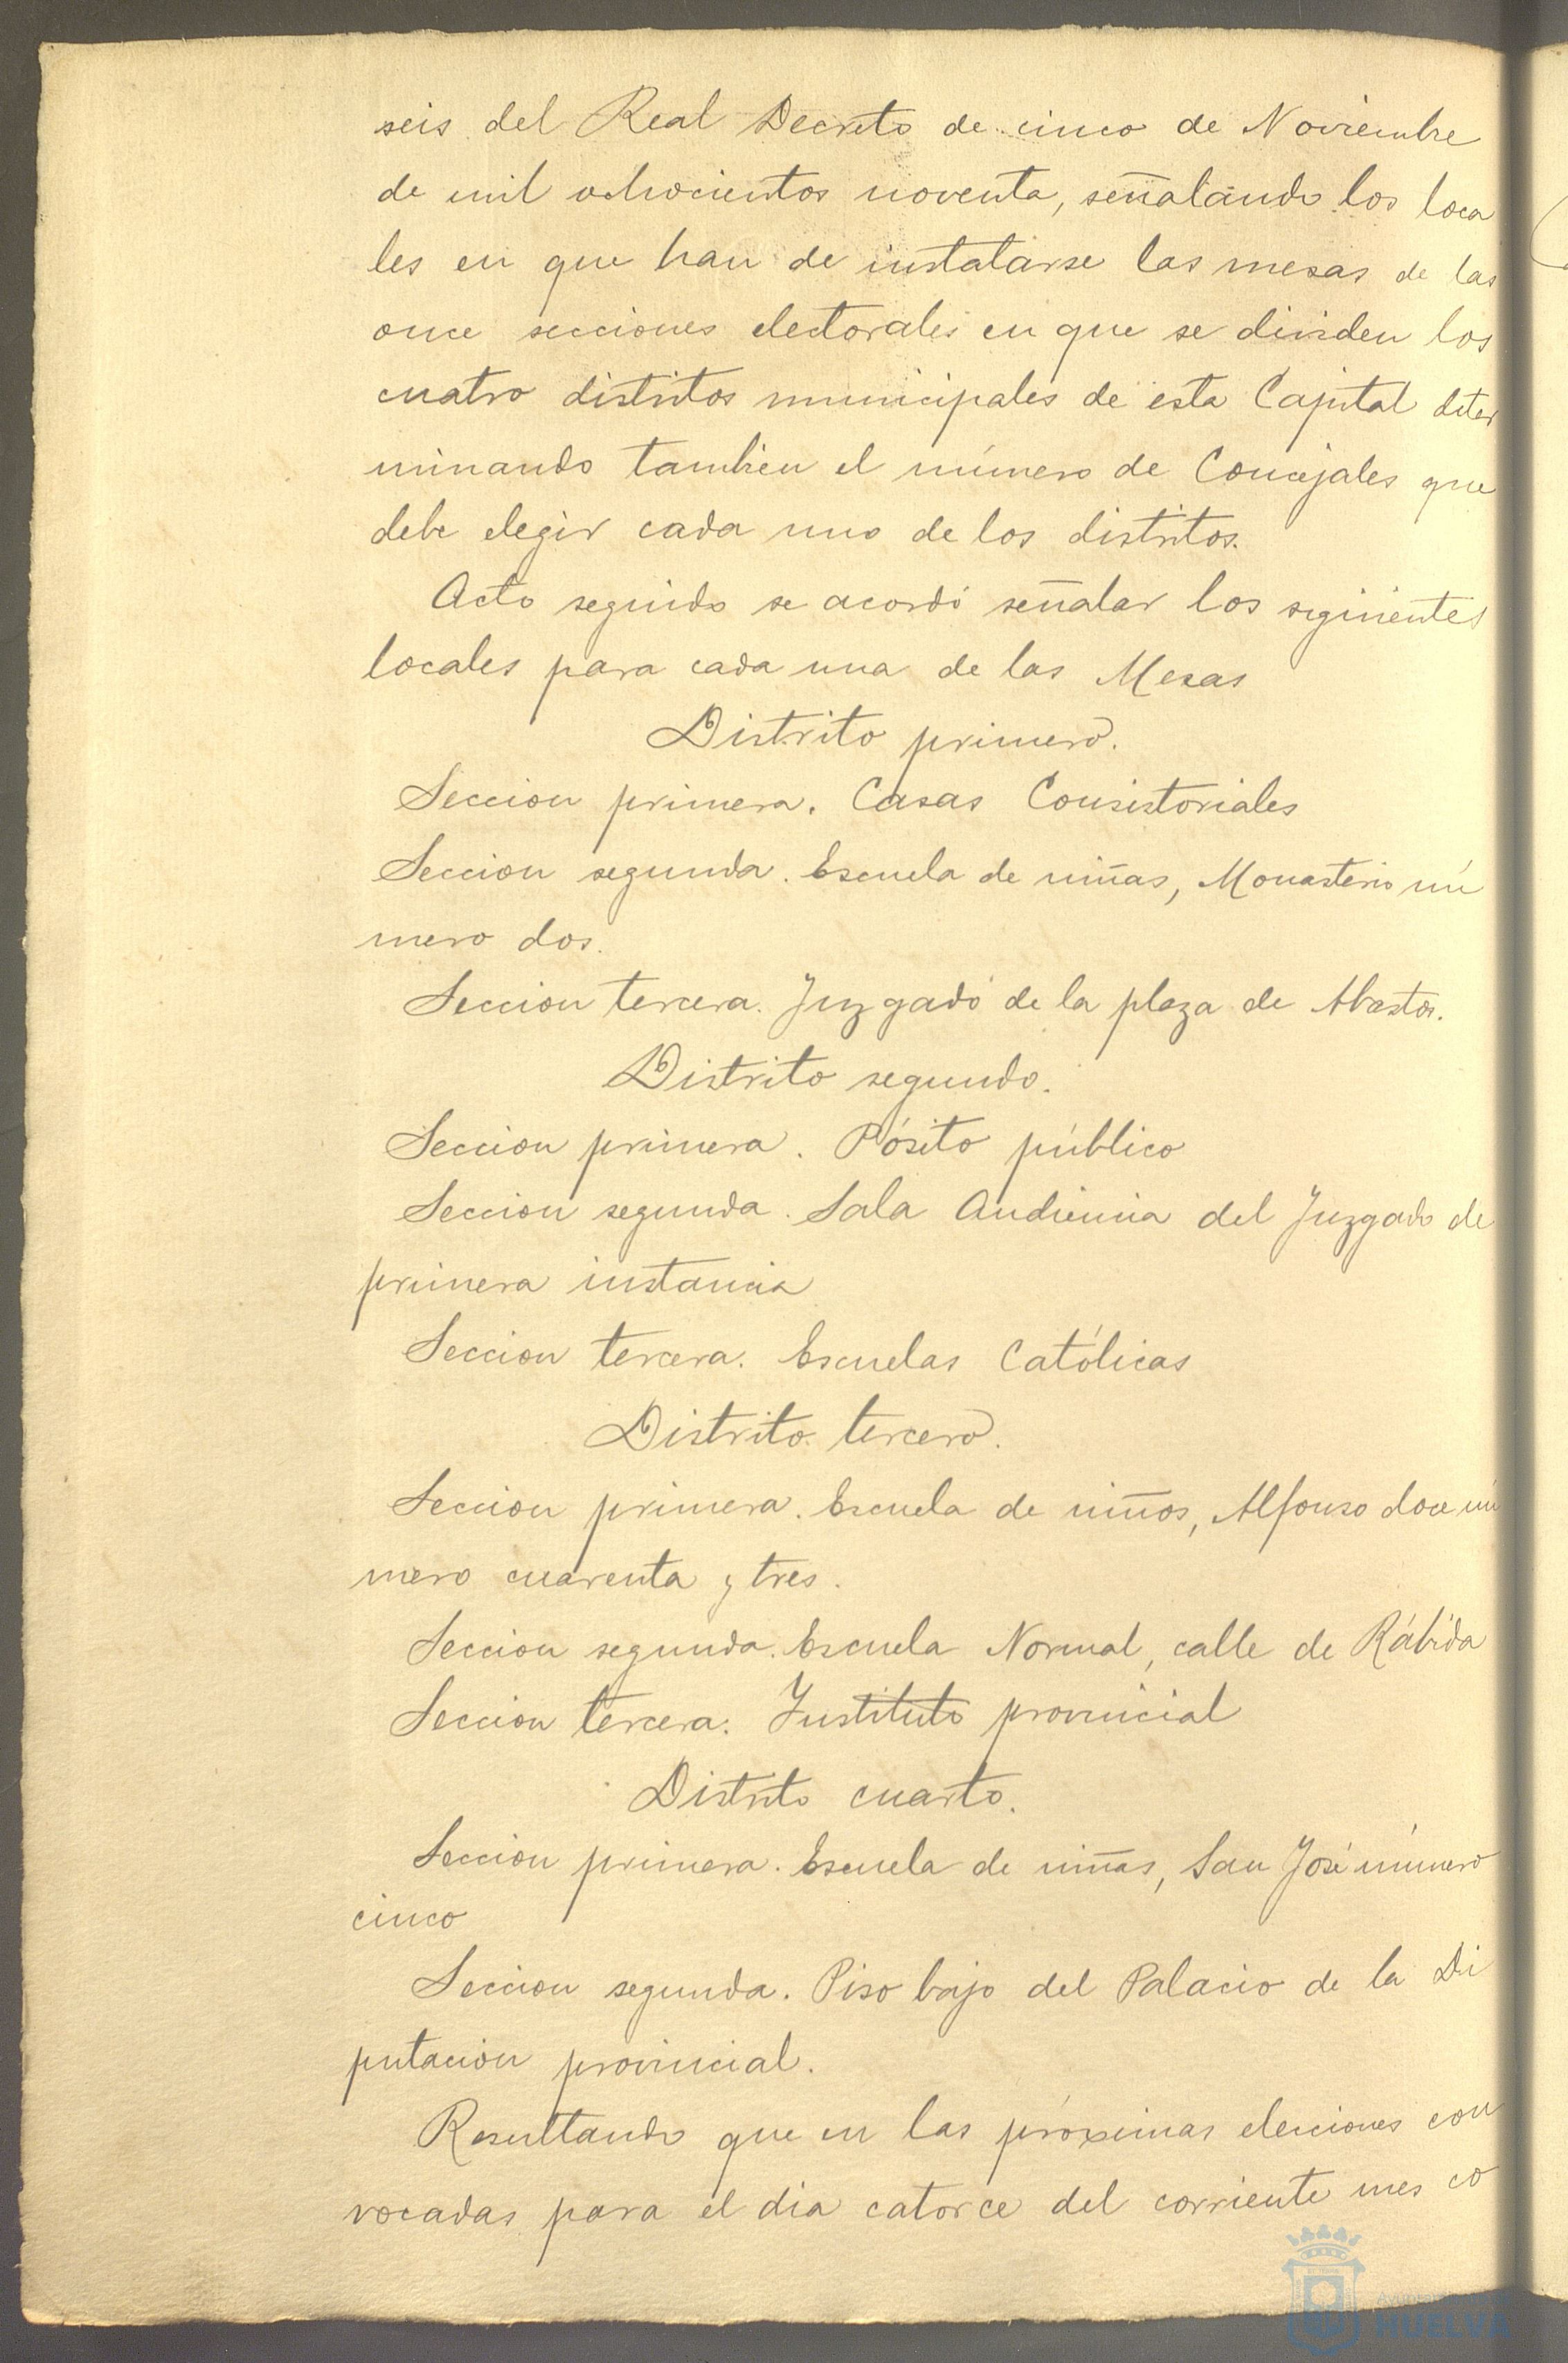 seis del Real Decreto de cinco de Noviembre
de mil ochocientos noventa, señalando los loca
les en que han de instalarse las mesas de las
once secciones electorales en que se dividen los
cuatro distritos municipales de esta Capital deter
minando tambien el número de Concejales que
debe elegir cada uno de los distritos.
Acto seguido se acordó señalar los siguientes
locales para cada una de las Mesas
Distrito primero.
Seccion primera. Casas Consistoriales
Seccion segunda. Escuela de niñas, Monasterio nú
mero dos.
Seccion tercera. Juzgado de la plaza de Abastos.
Distrito segundo.
Seccion primera. Pósito público
Seccion segunda. Sala Audiencia del Juzgado de
primera instancia
Seccion tercera. Escuelas Católicas
Distrito tercero.
Seccion primera. Escuela de niños, Alfonso doce nú
mero cuarenta y tres.
Seccion segunda. Escuela Normal, calle de Rábida
Seccion tercera. Instituto provincial
Distrito cuarto.
Seccion primera. Escuela de niñas, San José número
cinco
Seccion segunda. Piso bajo del Palacio de la Di
putacion provincial.
Resultando que en las próximas elecciones con
vocadas para el dia catorce del corriente mes co
HUELVA